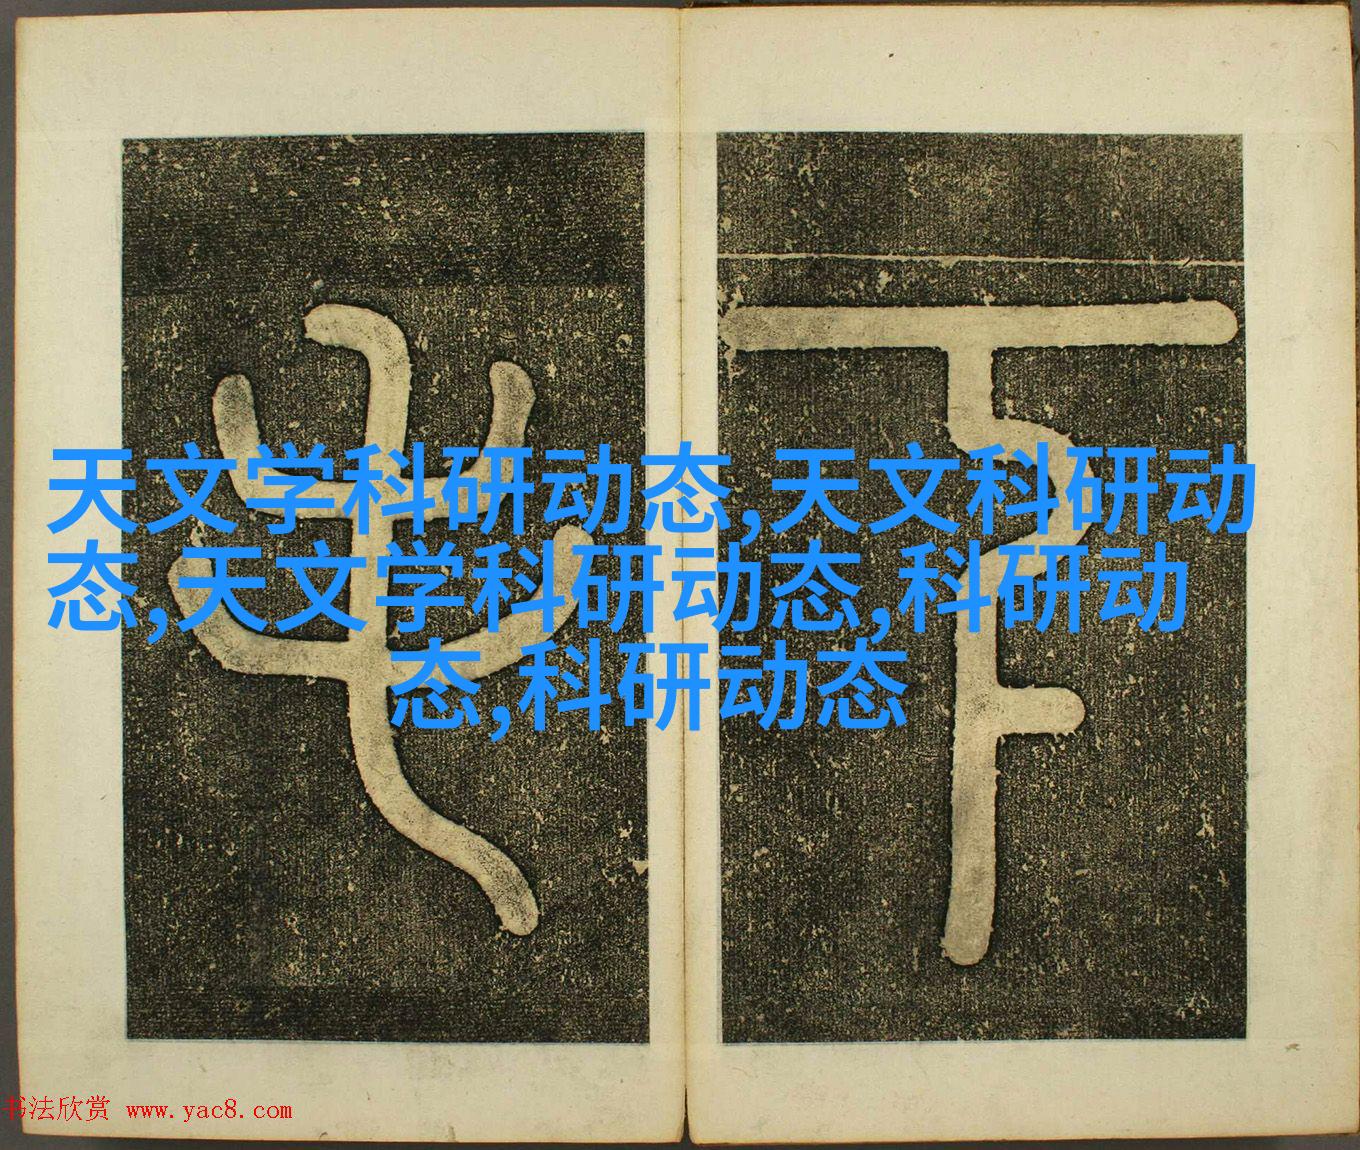 天文学科研动态,天文科研动
态,天文学科研动态,科研动
态,科研动态
书法欣赏 www.yac8.com